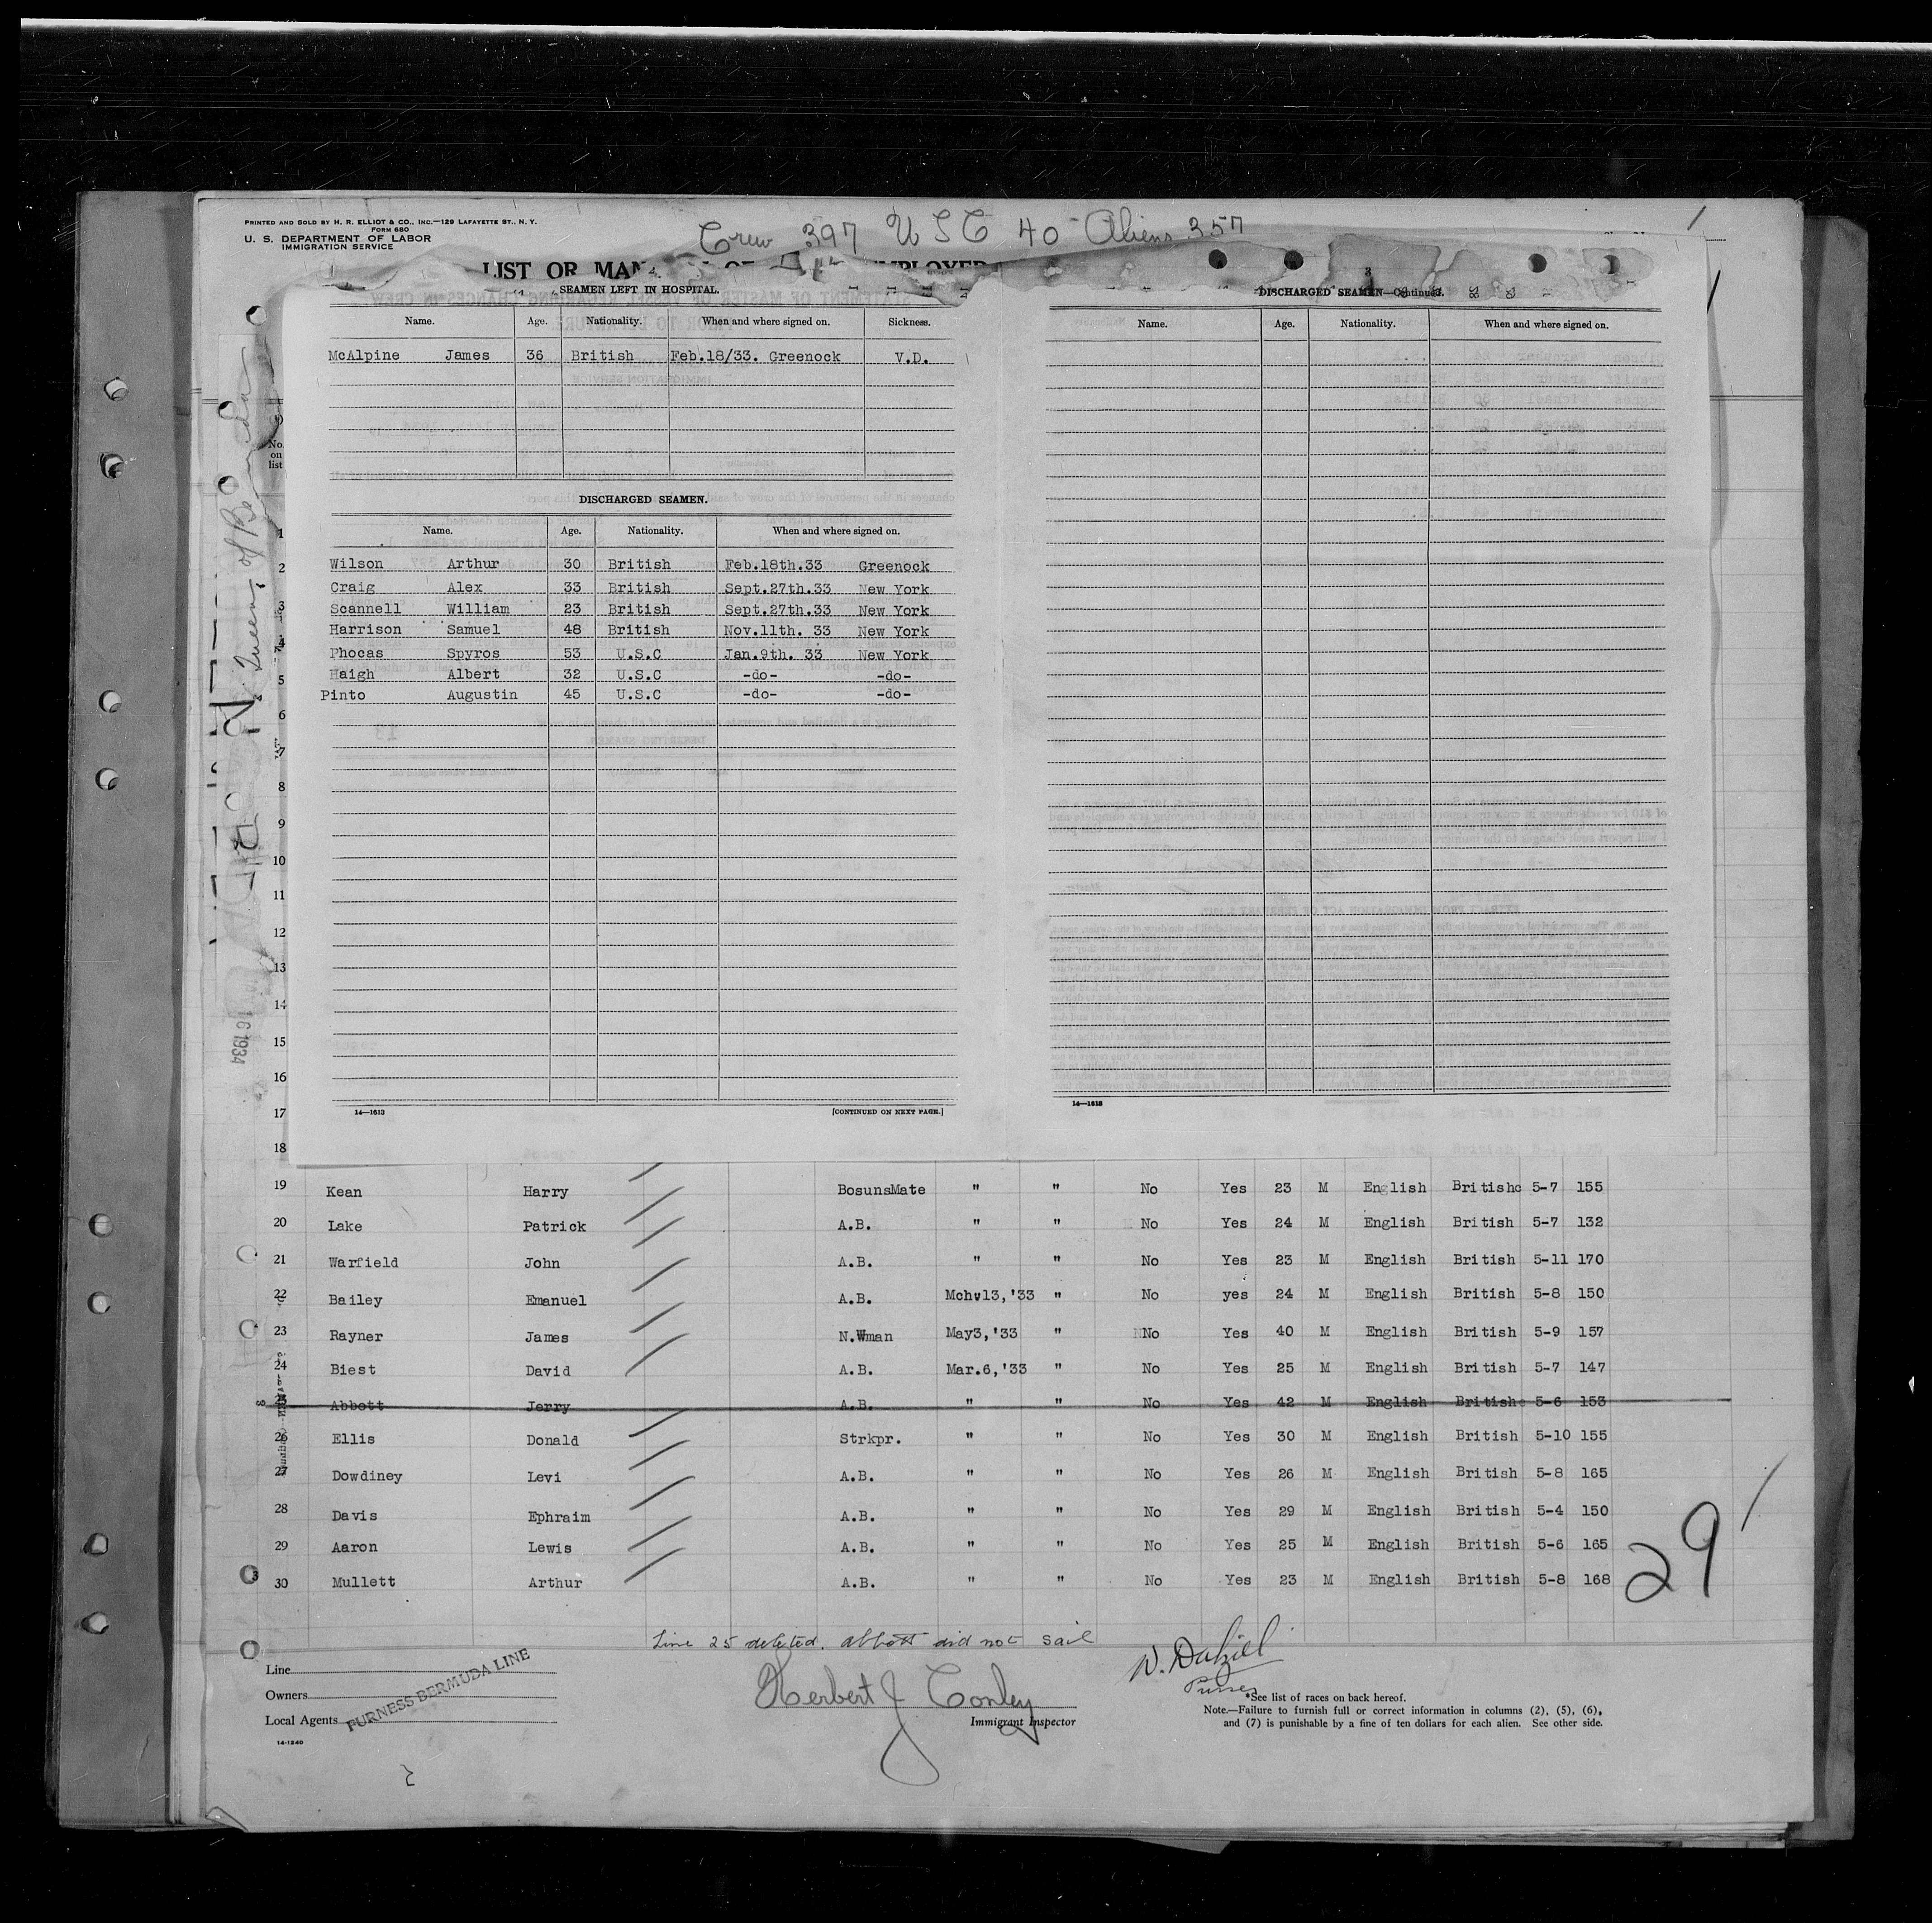 PRINTED AND SOLD BY H. R. ELLIOT & CO., INC.—129 LAFAYETTE ST., N. Y.
FORM 680
U. S. DEPARTMENT OF LABOR
IMMIGRATION SERVICE
Crew 397 USC 40 Aliens 357
LIST OR MAN
SEAMEN LEFT IN HOSPITAL.
Name. Age. Nationality. When and where signed on. Sickness.
McAlpine James 36 British Feb.18/33. Greenock V.D.
DISCHARGED SEAMEN.
Name. Age. Nationality. When and where signed on.
Wilson Arthur 30 British Feb.18th.33 Greenock
Craig Alex 33 British Sept.27th.33 New York
Scannell William 23 British Sept.27th.33 New York
Harrison Samuel 48 British Nov.11th. 33 New York
Phocas Spyros 53 U.S.C Jan.9th. 33 New York
Haigh Albert 32 U.S.C -do- -do-
Pinto Augustin 45 U.S.C -do- -do-
14—1613 [CONTINUED ON NEXT PAGE.]
DISCHARGED SEAMEN—Continued.
Name. Age. Nationality. When and where signed on.
14—1613
No. on list
1
2
3
4
5
6
7
8
9
10
11
12
13
14
15
16
17
18
19 Kean Harry BosunsMate " " No Yes 23 M English Britishc 5-7 155
20 Lake Patrick A.B. " " No Yes 24 M English British 5-7 132
21 Warfield John A.B. " " No Yes 23 M English British 5-11 170
22 Bailey Emanuel A.B. Mchv13,'33 " No yes 24 M English British 5-8 150
23 Rayner James N.Wman May3,'33 " NNo Yes 40 M English British 5-9 157
24 Biest David A.B. Mar.6,'33 " No Yes 25 M English British 5-7 147
25 Abbott Jerry A.B. " " No Yes 42 M English Britishc 5-6 153
26 Ellis Donald Strkpr. " " No Yes 30 M English British 5-10 155
27 Dowdiney Levi A.B. " " No Yes 26 M English British 5-8 165
28 Davis Ephraim A.B. " " No Yes 29 M English British 5-4 150
29 Aaron Lewis A.B. " " No Yes 25 M English British 5-6 165
30 Mullett Arthur A.B. " " No Yes 23 M English British 5-8 168
29
Line 25 deleted. Abbott did not sail
Line
Owners
Local Agents
FURNESS BERMUDA LINE
14-1240
Herbert J Conley
Immigrant Inspector
Purser
*See list of races on back hereof.
Note.—Failure to furnish full or correct information in columns (2), (5), (6), and (7) is punishable by a fine of ten dollars for each alien. See other side.
Queen of Bermuda
16 1934